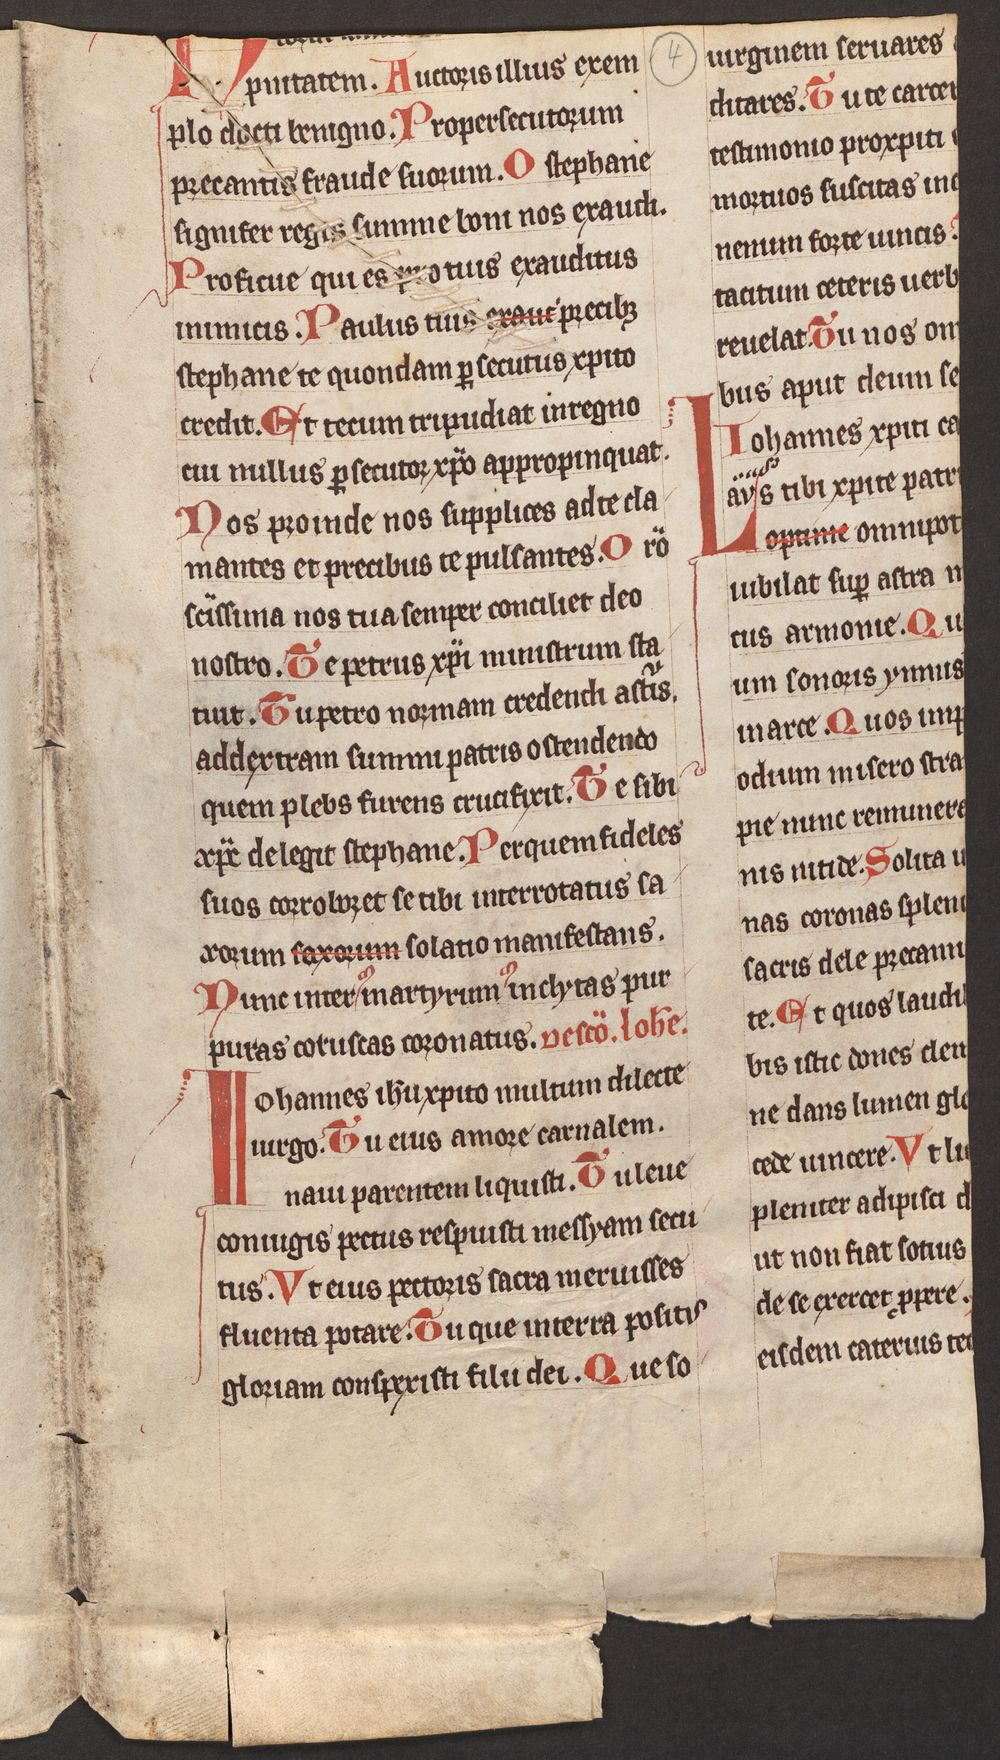 pinitatem. Auctoris illius exem
plo docti benigno. Propersecutorum
precantis fraude suorum. O stephane
signifer regis summe boni nos exaudi.
Proficue qui es pro tuis exauditus
inimicis. Paulus tuis precibꝫ
stephane te quondam ꝑsecutus xpito
credit. Et tecum tripudiat inregno
cui nullus ꝑsecutor xp̄o appropinquat.
Nos proinde nos supplices adte cla
mantes et precibus te pulsantes. O rō
sc̄issima nos tua semper conciliet deo
nostro. Te petrus xp̄i ministrum sta
tuit. Tu petro normam credendi ast̄is.
addextram summi patris ostendendo
quem plebs furens crucifixit. Te sibi
xp̄c delegit stephane. Perquem fideles
suos corroboret se tibi interrotatus sa
xorum saxorum solatio manifestans.
Nunc inter martyrum inclytas pur
puras coruscas coronatus. De sc̄o. Ioh̄e.
Iohannes ih̄u xpito multum dilecte
uirgo. Tu eius amore carnalem.
naui parentem liquisti. Tu leue
coniugis pectus respuisti messyam secu
tus. Vt eius pectoris sacra meruisses
fluenta potare. Tu que interra positus
gloriam conspexisti filii dei. Que so
4
uirginem seruares
ditares. Tu te carcer
testimonio proxpiti
mortuos suscitas in
nenum forte uincis.
tacitum ceteris uerb
reuelat. Tu nos om
bus aput deum se
Iohannes xpiti ca
Laus tibi xpite patr
optime omnipot
iubilat suꝑ astra
tus armonie. Qu
um sonoris ymnis
marce. Quos imp
odium misero stra
pie nunc remunera
nis nitide. Solita u
nas coronas splen
sacris dele precami
te. Et quos laudi
bis istic dones den
ne dans lumen glo
cede uincere. Vt lu
pleniter adipisci d
ut non fiat sotius
de se exercet ꝓpere.
eisdem cateruis te